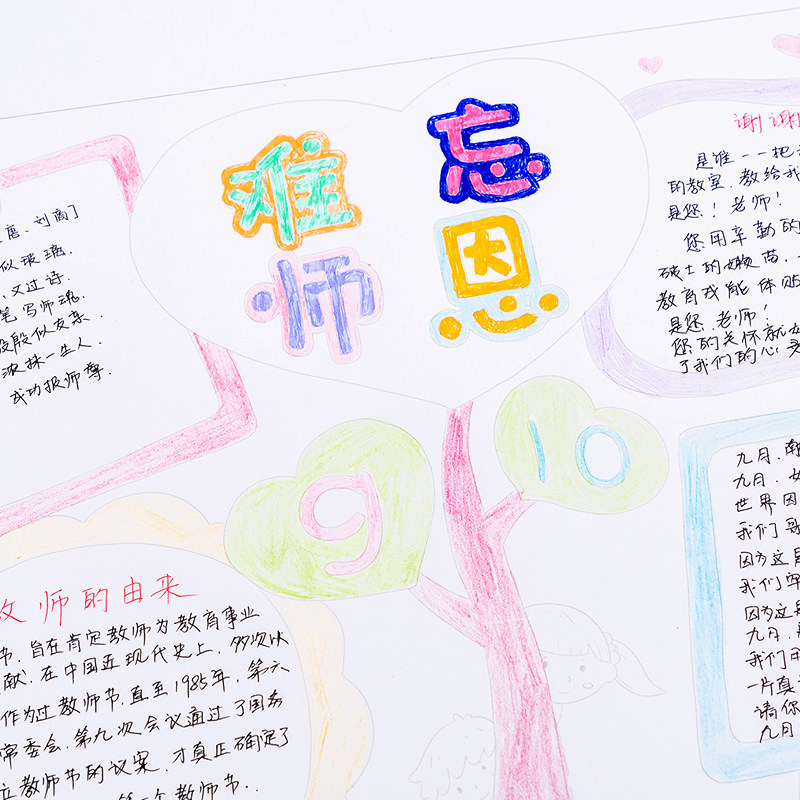 难忘
师恩
9 10
[唐·刘商]
似玻璃.
,又过诗.
笔写师魂.
殷似友亲.
浓抹一生人.
成功报师尊.
谢谢
是谁--把
的教室,教给我
是您!老师!
您用辛勤的
硕士的嫩苗.
教育我能体贴
是您,老师!
您的关怀就如
了我们的心,
师的由来
节,旨在肯定教师为教育事业
献.在中国近现代史上,多次以
作为过教师节.直至1985年,第六
常委会,第九次会议通过了国务
立教师节的议案,才真正确定了
第一个教师节..
九月,
九月,
世界因
我们
因为这是
我们
因为这是
九月,
我们
一片真
请你
九月